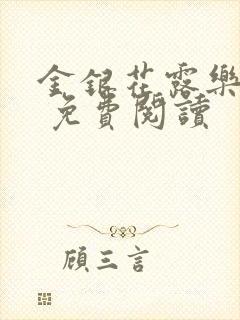 金銀花露樂
免費閱讀
顧三言